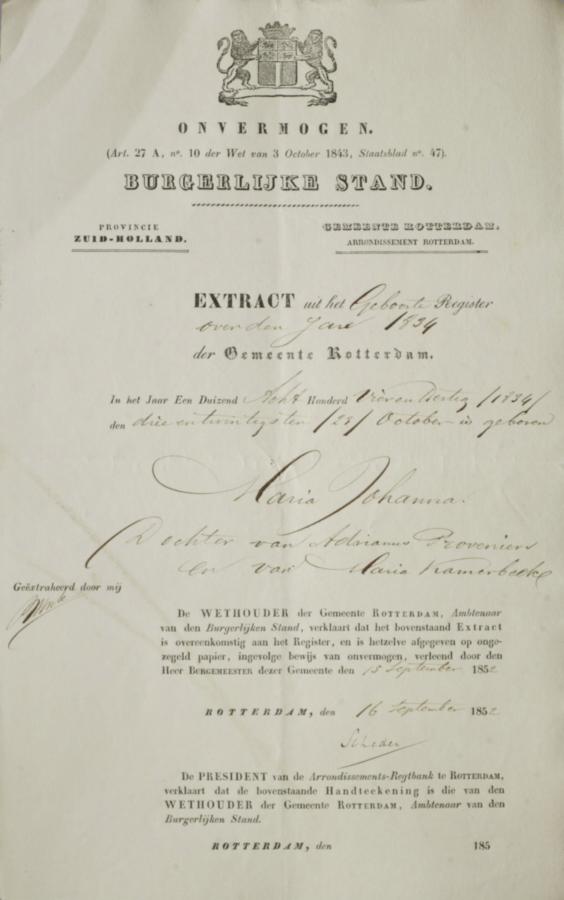 ONVERMOGEN.
(Art. 27 A, nº. 10 der Wet van 3 October 1843, Staatsblad nº. 47).
BURGERLIJKE STAND.
PROVINCIE
ZUID-HOLLAND.
GEMEENTE ROTTERDAM.
ARRONDISSEMENT ROTTERDAM.
EXTRACT uit het Geboorte Register
over den Jare 1834
der Gemeente Rotterdam.
In het Jaar Een Duizend Acht Honderd Vier en Dertig /1834/
den drie en twintigsten /23/ October is geboren
Maria Johanna.
Dochter van Adrianus Proveniers
en van Maria Kamerbeek
Geëxtraheerd door mij
De WETHOUDER der Gemeente ROTTERDAM, Ambtenaar
van den Burgerlijken Stand, verklaart dat het bovenstaand Extract
is overeenkomstig aan het Register, en is hetzelve afgegeven op onge-
zegeld papier, ingevolge bewijs van onvermogen, verleend door den
Heer BURGEMEESTER dezer Gemeente den 15 September 1852
ROTTERDAM, den 16 September 1852
De PRESIDENT van de Arrondissements-Regtbank te ROTTERDAM,
verklaart dat de bovenstaande Handteekening is die van den
WETHOUDER der Gemeente ROTTERDAM, Ambtenaar van den
Burgerlijken Stand.
ROTTERDAM, den 185